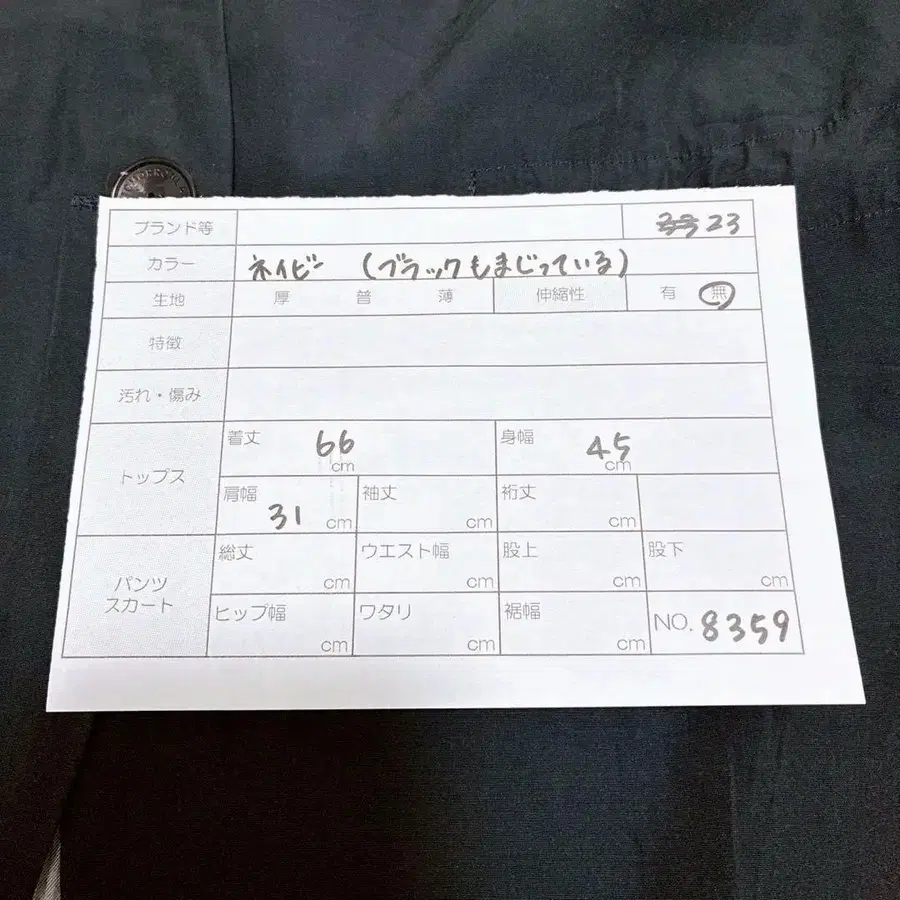 ブランド等 23
カラー ネイビー (ブラックもまじっている)
生地 厚 普 薄 伸縮性 有 無
特徴
汚れ・傷み
トップス
着丈 66 cm 身幅 45 cm
肩幅 31 cm 袖丈 cm 裄丈 cm
パンツ
スカート
総丈 cm ウエスト幅 cm 股上 cm 股下 cm
ヒップ幅 cm ワタリ cm 裾幅 cm NO. 8359